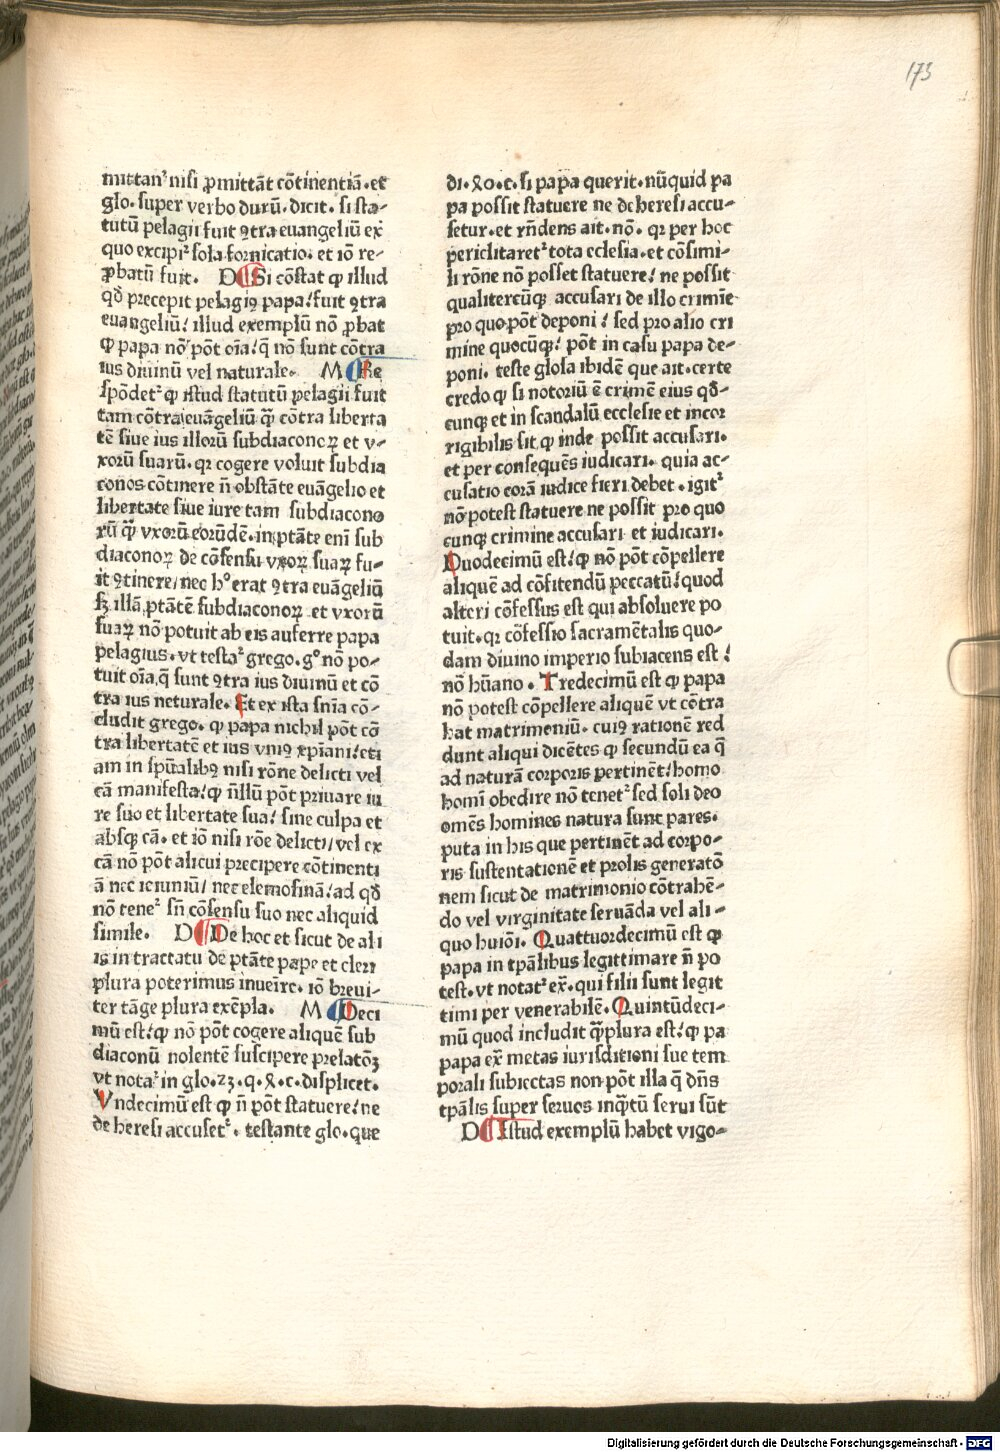 173
mittanꝰ nisi ꝓmittāt cōtinentiā. et
glo. super verbo durū. dicit. si sta-
tutū pelagii fuit ꝯtra euangeliū ex̄
quo excipiꝰ sola fornicatio. et iō re-
ꝓbatū fuit. D Si cōstat ꝙ illud
qd̄ precepit pelagiꝯ papa/ fuit ꝯtra
euangeliū/ illud exemplū nō ꝓbat
ꝙ papa nō pōt oīa/ q̄ nō sunt cōtra
ius diuinū vel naturale. M Re
spōdetꝰ ꝙ istud statutū pelagii fuit
tam cōtra euāgeliū qꝫ cōtra liberta
tē siue ius illorū subdiaconoꝝ et v-
xorū suarū. qꝛ cogere voluit subdia
conos cōtinere n̄ obstāte euāgelio et
libertate siue iure tam subdiacono
rū qꝫ vxorū eorūdē. in ptāte enī sub
diaconoꝝ de cōsensu vxoꝝ suaꝝ fu-
it ꝯtinere/ nec hº erat ꝯtra euāgeliū
sꝫ illā ptātē subdiaconoꝝ et vxorū
suaꝝ nō potuit ab eis auferre papa
pelagius. vt testaꝰ grego. gº nō po-
tuit oīa q̄ sunt ꝯtra ius diuinū et cō
tra ius neturale. Et ex ista sn̄ia cō-
cludit grego. ꝙ papa nichil pōt cō
tra libertatē et ius vniꝯ xpiani/ eti
am in spūalibꝯ nisi rōne delicti vel
cā manifesta/ ꝙ n̄llū pōt priuare iu
re suo et libertate sua/ sine culpa et
absqꝫ cā. et iō nisi rōe delicti/ vel ex
cā nō pōt alicui precipere cōtinenti
ā nec ieiuniū/ nec elemosinā/ ad qd̄
nō teneꝰ sn̄ cōsensu suo nec aliquid
simile. D De hoc et sicut de ali
is in tractatu de ptāte pape et cleri
plura poterimus inueire. iō breui-
ter tāge plura exēpla. M Deci
mū est/ ꝙ nō pōt cogere aliquē sub
diaconū nolentē suscipere prelatōꝫ
vt notaꝰ in glo. 23. q. 8. c. displicet.
Vndecimū est ꝙ n̄ pōt statuere/ ne
de heresi accusetꝰ. testante glo. que
di. 80. c. si papa querit. nūquid pa
pa possit statuere ne de heresi accu-
setur. et rn̄dens ait. nō. qꝛ per hoc
periclitaretꝰ tota ecclesia. et cōsimi-
li rōne nō posset statuere/ ne possit
qualitercūqꝫ accusari de illo crimīe
pro quo pōt deponi/ sed pro alio cri
mine quocūqꝫ/ pōt in casu papa de-
poni. teste glosa ibidē que ait. certe
credo ꝙ si notoriū ē crimē eius qd̄-
cunqꝫ et in scandalū ecclesie et incor
rigibilis sit ꝙ inde possit accusari.
et per consequēs iudicari. quia ac-
cusatio corā iudice fieri debet. igitꝰ
nō potest statuere ne possit pro quo
cunqꝫ crimine accusari et iudicari.
Duodecimū est/ ꝙ nō pōt cōpellere
aliquē ad cōfitendū peccatū/ quod
alteri cōfessus est qui absoluere po
tuit. qꝛ cōfessio sacramētalis quo-
dam diuino imperio subiacens est/
nō hūano. Tredecimū est ꝙ papa
nō potest cōpellere aliquē vt cōtra
hat matrimoniū. cuiꝯ rationē red
dunt aliqui dicētes ꝙ secundū ea q̄
ad naturā corporis pertinēt/ homo
homī obedire nō tenetꝰ sed soli deo
omēs homines natura sunt pares.
puta in his que pertinēt ad corpo-
ris sustentationē et prolis generatō
nem sicut de matrimonio cōtrahē-
do vel virginitate seruāda vel ali-
quo huiōi. Quattuordecimū est ꝙ
papa in tpālibus legittimare n̄ po
test. vt notatꝰ ex̄. qui filii sunt legit
timi per venerabilē. Quintūdeci-
mū quod includit qꝫplura est/ ꝙ pa
papa ex̄ metas iurisditioni sue tem
porali subiectas non pōt illa q̄ dn̄s
tpālis super seruos inqꝫtū serui sūt
D Istud exemplū habet vigo-
Digitalisierung gefördert durch die Deutsche Forschungsgemeinschaft - DFG